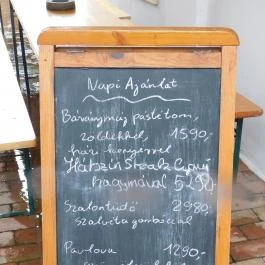 Napi Ajánlat
Báránymáj pástétom,
zöldekkel, 1590,-
házi kenyérrel
Hátszín Steak Lyoni
hagymával 5290
Szalontüdő 2980,
szalvéta gombóccal
Pavlova 1290,-